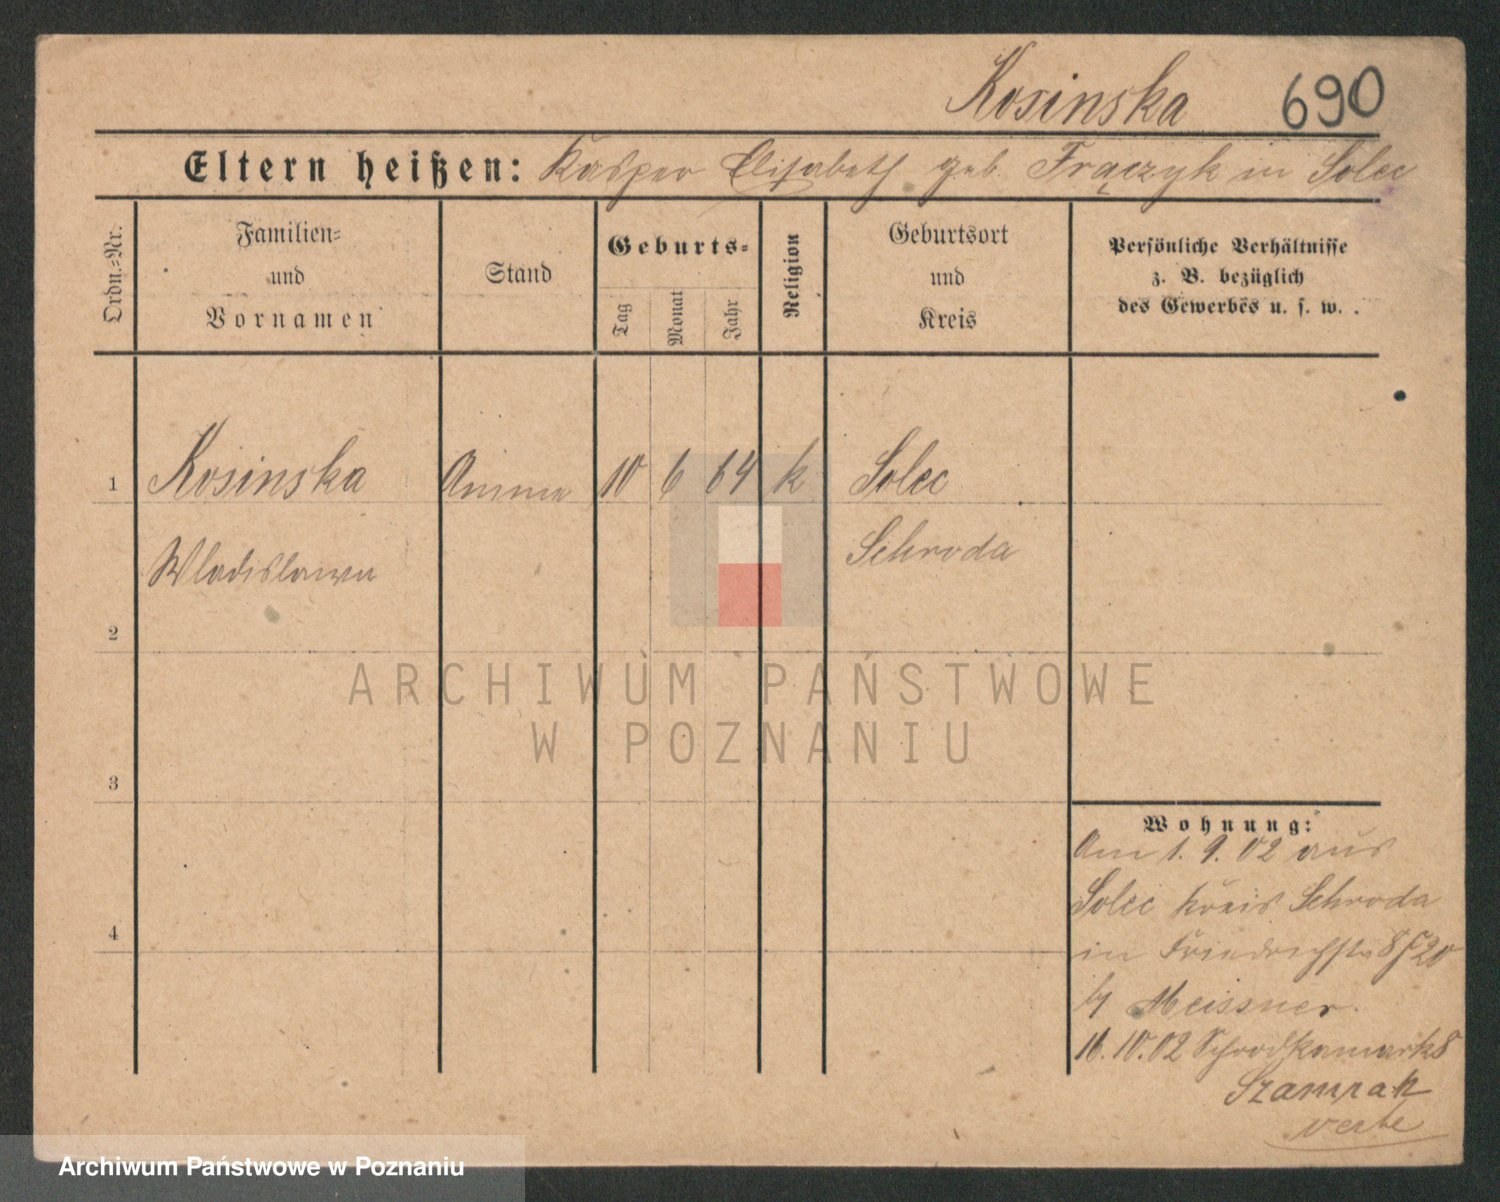 Kosinska 690
Eltern heißen: Kasper Elisabeth geb. Frączyk in Solec
Ordn.-Nr.
Familien-
und
Vornamen
Stand
Geburts-
Tag
Monat
Jahr
Religion
Geburtsort
und
Kreis
Persönliche Verhältnisse
z. B. bezüglich
des Gewerbes u. s. w.
1 Kosinska Amme 10 6 64 k Solec
Wladislawa Schroda
2
3
4
Wohnung:
Am 1. 9. 02 aus
Solec Kreis Schroda
in Friedrichstr 20
b/ Meissner.
16. 10. 02
verte
ARCHIWUM PAŃSTWOWE
W POZNANIU
Archiwum Państwowe w Poznaniu